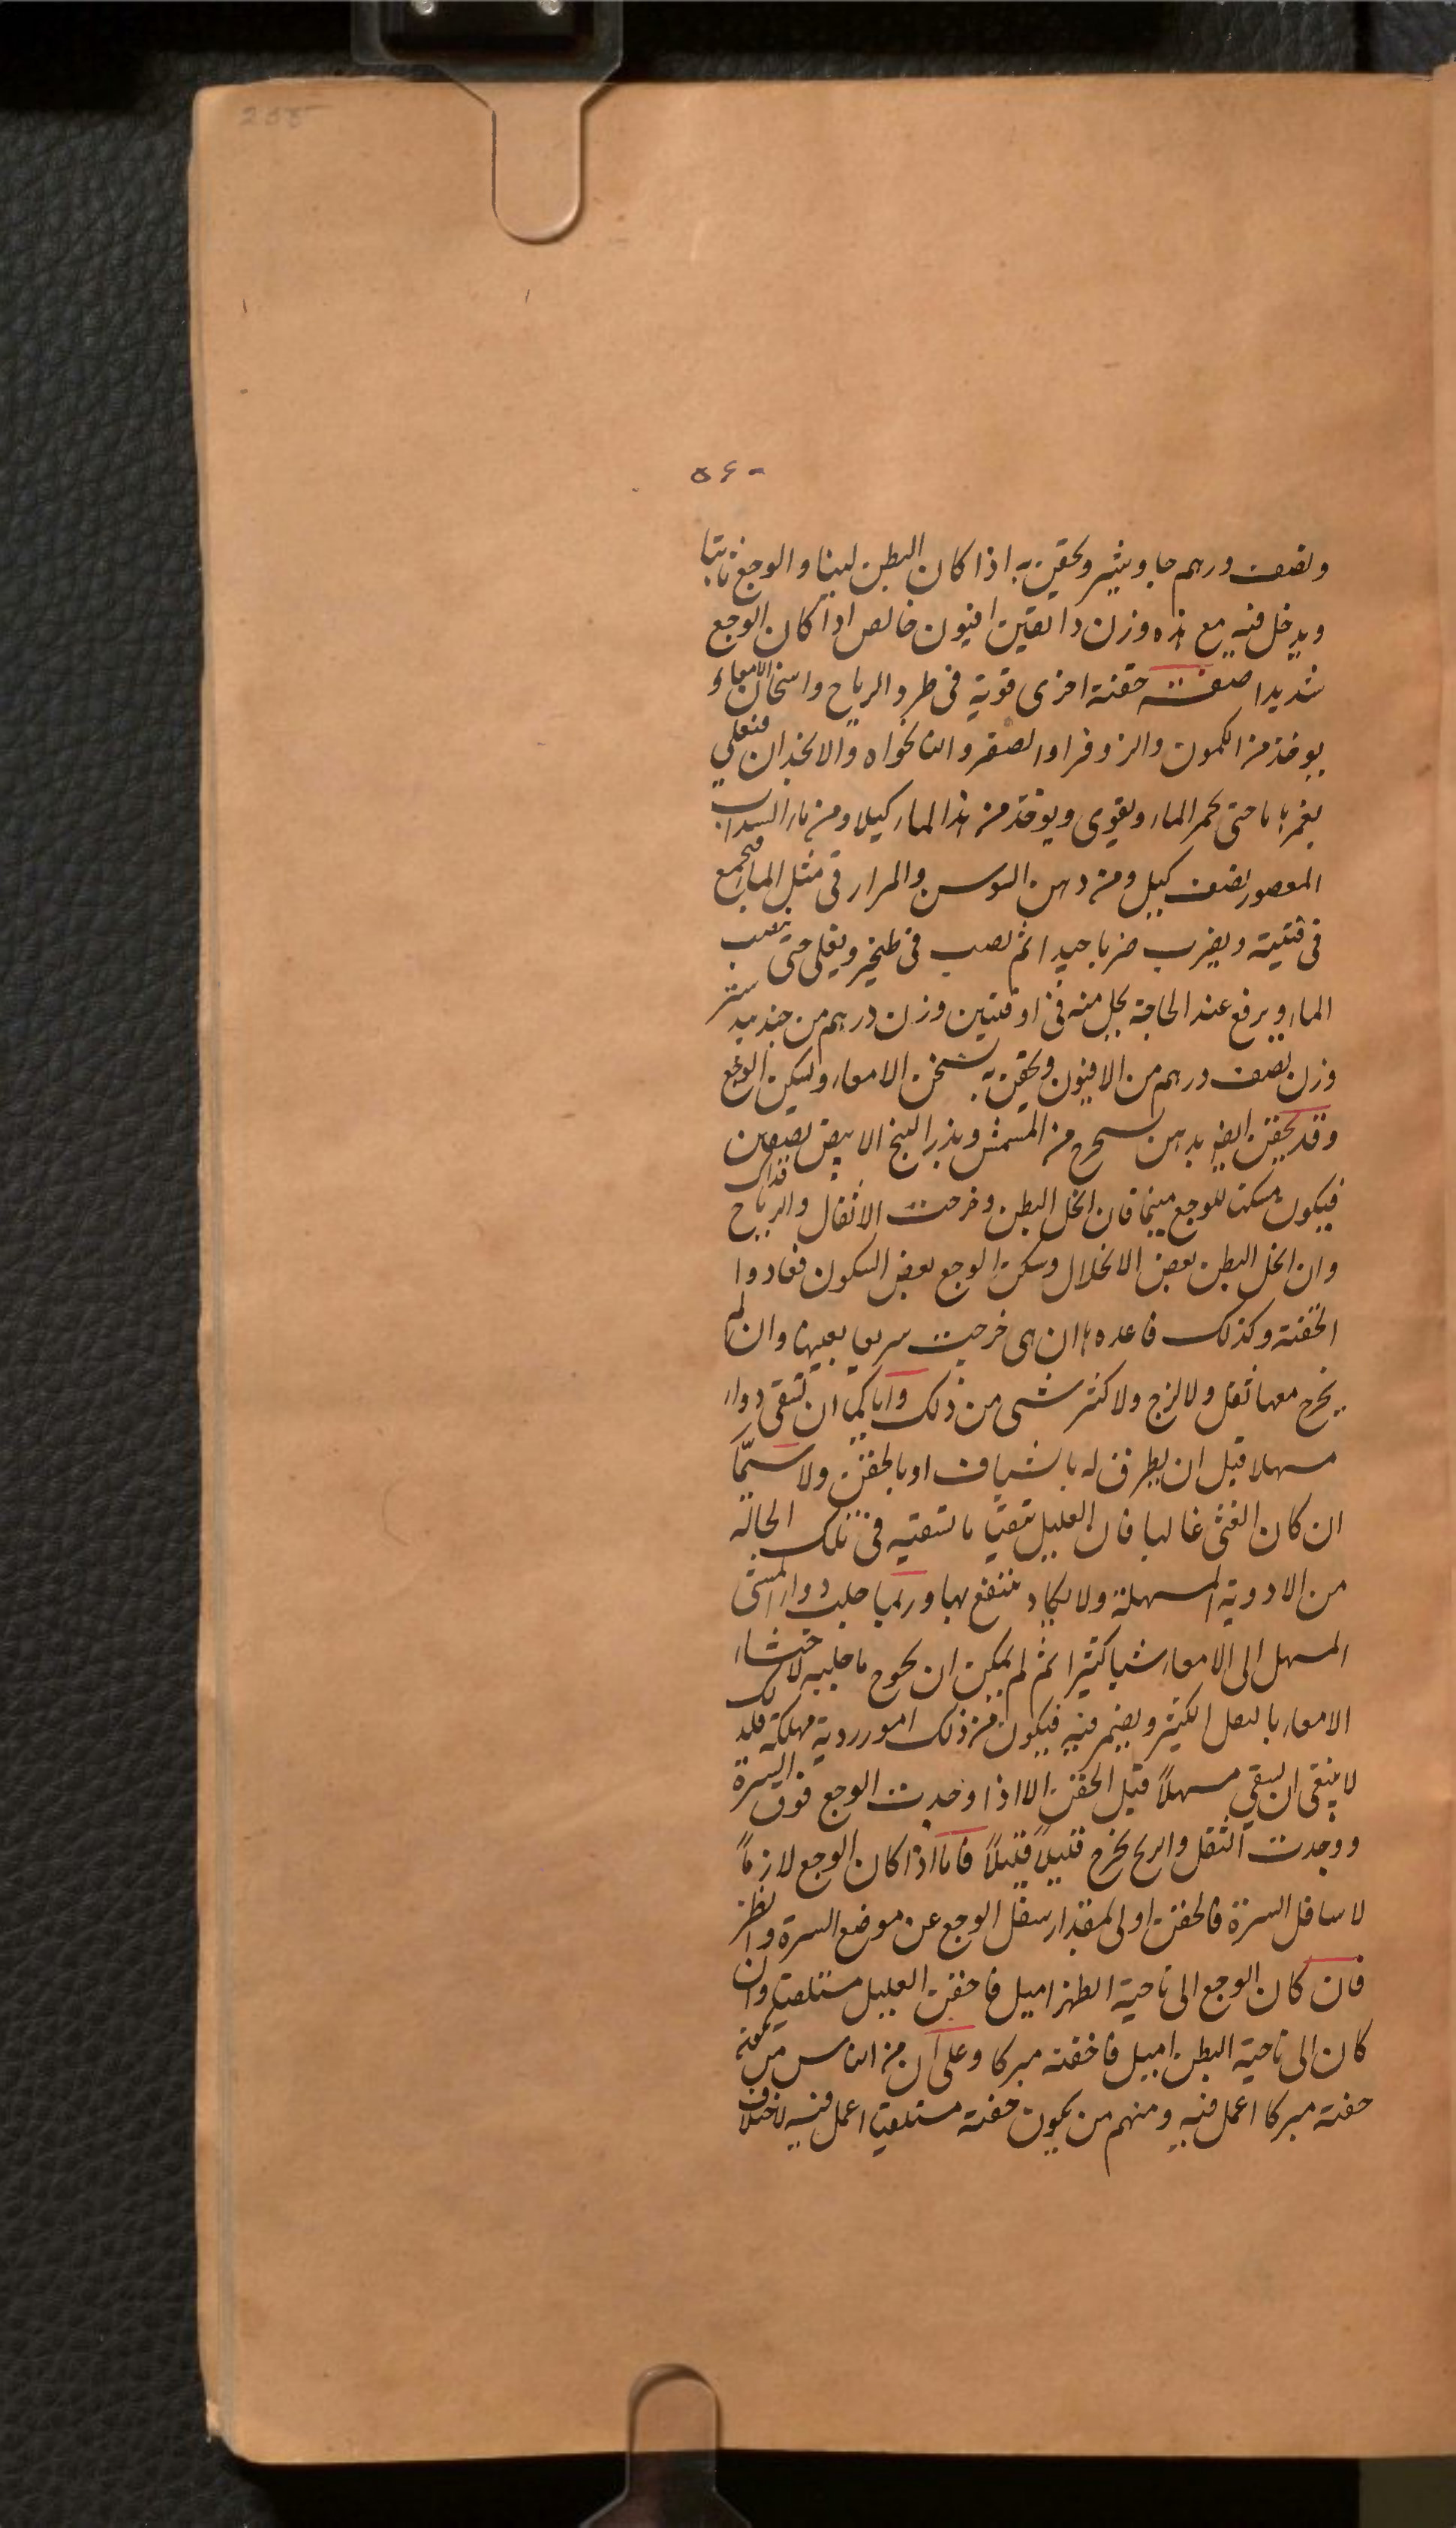 255
٥٦٠
ونصف درهم جاوشير ويحقن به اذا كان البطن لينا والوجع ثابتا
ويدخل فيه مع هذه وزن دانقين افيون خالص اذا كان الوجع
شديدا صفت حقنة اخرى قوية فى طرد الرياح واسخان الامعاء و
يوخذ من الكمون والزوفرا والصعتر والنانخواه والانجذان فيغلى
بغمرها ما حتى يحمر الماء ويقوى ويوخذ من هذا الماء كيلا ومن ماء السداب
المعصور نصف كيل ومن دهن السوسن والمرار فى مثل الماء فيجمع
فى قنينة ويضرب ضربا جيدا ثم يصب فى طنجير ويغلى حتى يذهب
الماء ويرفع عند الحاجة يحل منه فى اوقيتين وزن درهم من جند بيدستر
وزن نصف درهم من الافيون ويحقن به يسخن الامعاء ويسكن الوجع
وقد يحقن ايضا بدهن يستخرج من المشمش وبذر البنج الابيض نصفين
فيكون مسكنا للوجع منيما فان انحل البطن وخرجت الاثقال والرياح فذاك
وان انحل البطن بعض الانحلال وسكن الوجع بعض السكون فعادوا
الحقنة وكذلك فاعدها ان هى خرجت سريعا بعينها وان لم
يخرج معها ثفل ولا لزج ولا كثر شى من ذلك واياكما ان تسقى دواء
مسهلا قبل ان يطرق له بالشياف او بالحقن ولا سيّما
ان كان الغثى غالبا فان العليل يتقيا ما تسقيه فى تلك الحالة
من الادوية المسهلة ولا يكاد ينتفع بها وربما جلب دواء المشى
المسهل الى الامعاء شيا كثيرا ثم لم يمكن ان يخرج ما جلبه لاحتشاء
الامعاء بالثفل الكثير ويضم فيه فيكون من ذلك امور ردية مهلكة فلذلك
لا ينبغى ان يسقى مسهلاً قبل الحقن الا اذا وجدت الوجع فوق السرة
ووجدت الثفل والريح يخرج قليلاً قليلاً فاما اذا كان الوجع لازماً
لاسافل السرة فالحقن اولى لمقدار سفل الوجع عن موضع السرة وانظر
فان كان الوجع الى ناحية الظهر اميل فاحقن العليل مستلقيا وان
كان الى ناحية البطن اميل فاحقنه مبركا وعلى ان من الناس من يكون
حقنه مبركا اعمل فيه ومنهم من يكون حقنه مستلقيا اعمل فيه لاختلاف